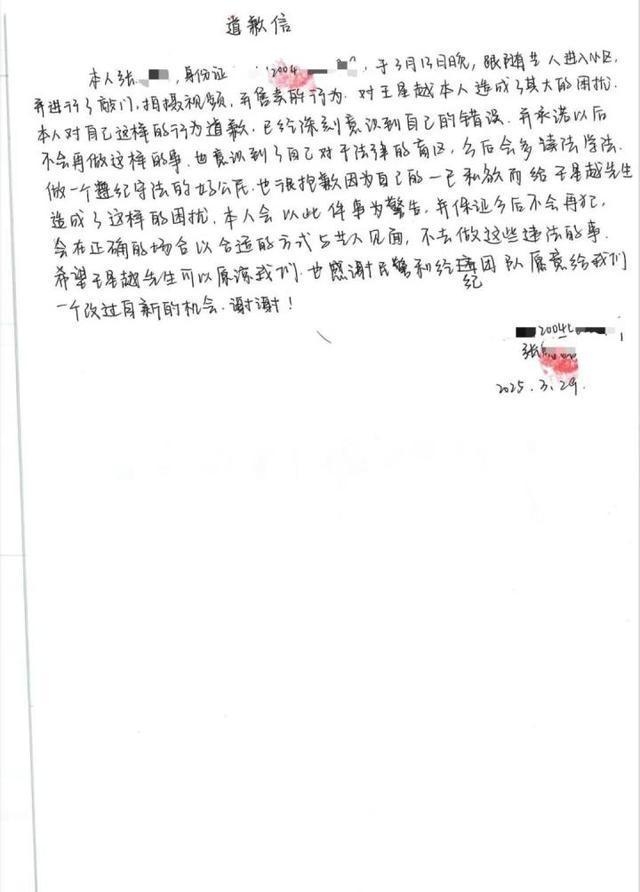 道歉信
本人张,身份证 2004 ,于3月13日晚,跟随艺人进入小区,
并进行了敲门,拍摄视频,并售卖的行为.对王星越本人造成了莫大的困扰.
本人对自己这样的行为道歉,已经深刻意识到自己的错误.并承诺以后
不会再做这样的事.也意识到了自己对于法律的盲区,今后会多读法学法.
做一个遵纪守法的好公民.也很抱歉因为自己的一己私欲而给王星越先生
造成了这样的困扰.本人会以此件事为警告,并保证今后不会再犯,
会在正确的场合以合适的方式与艺人见面,不去做这些违法的事.
希望王星越先生可以原谅我们.也感谢民警和经纪团队愿意给我们
一个改过自新的机会.谢谢!
2004
张
2025.3.29.